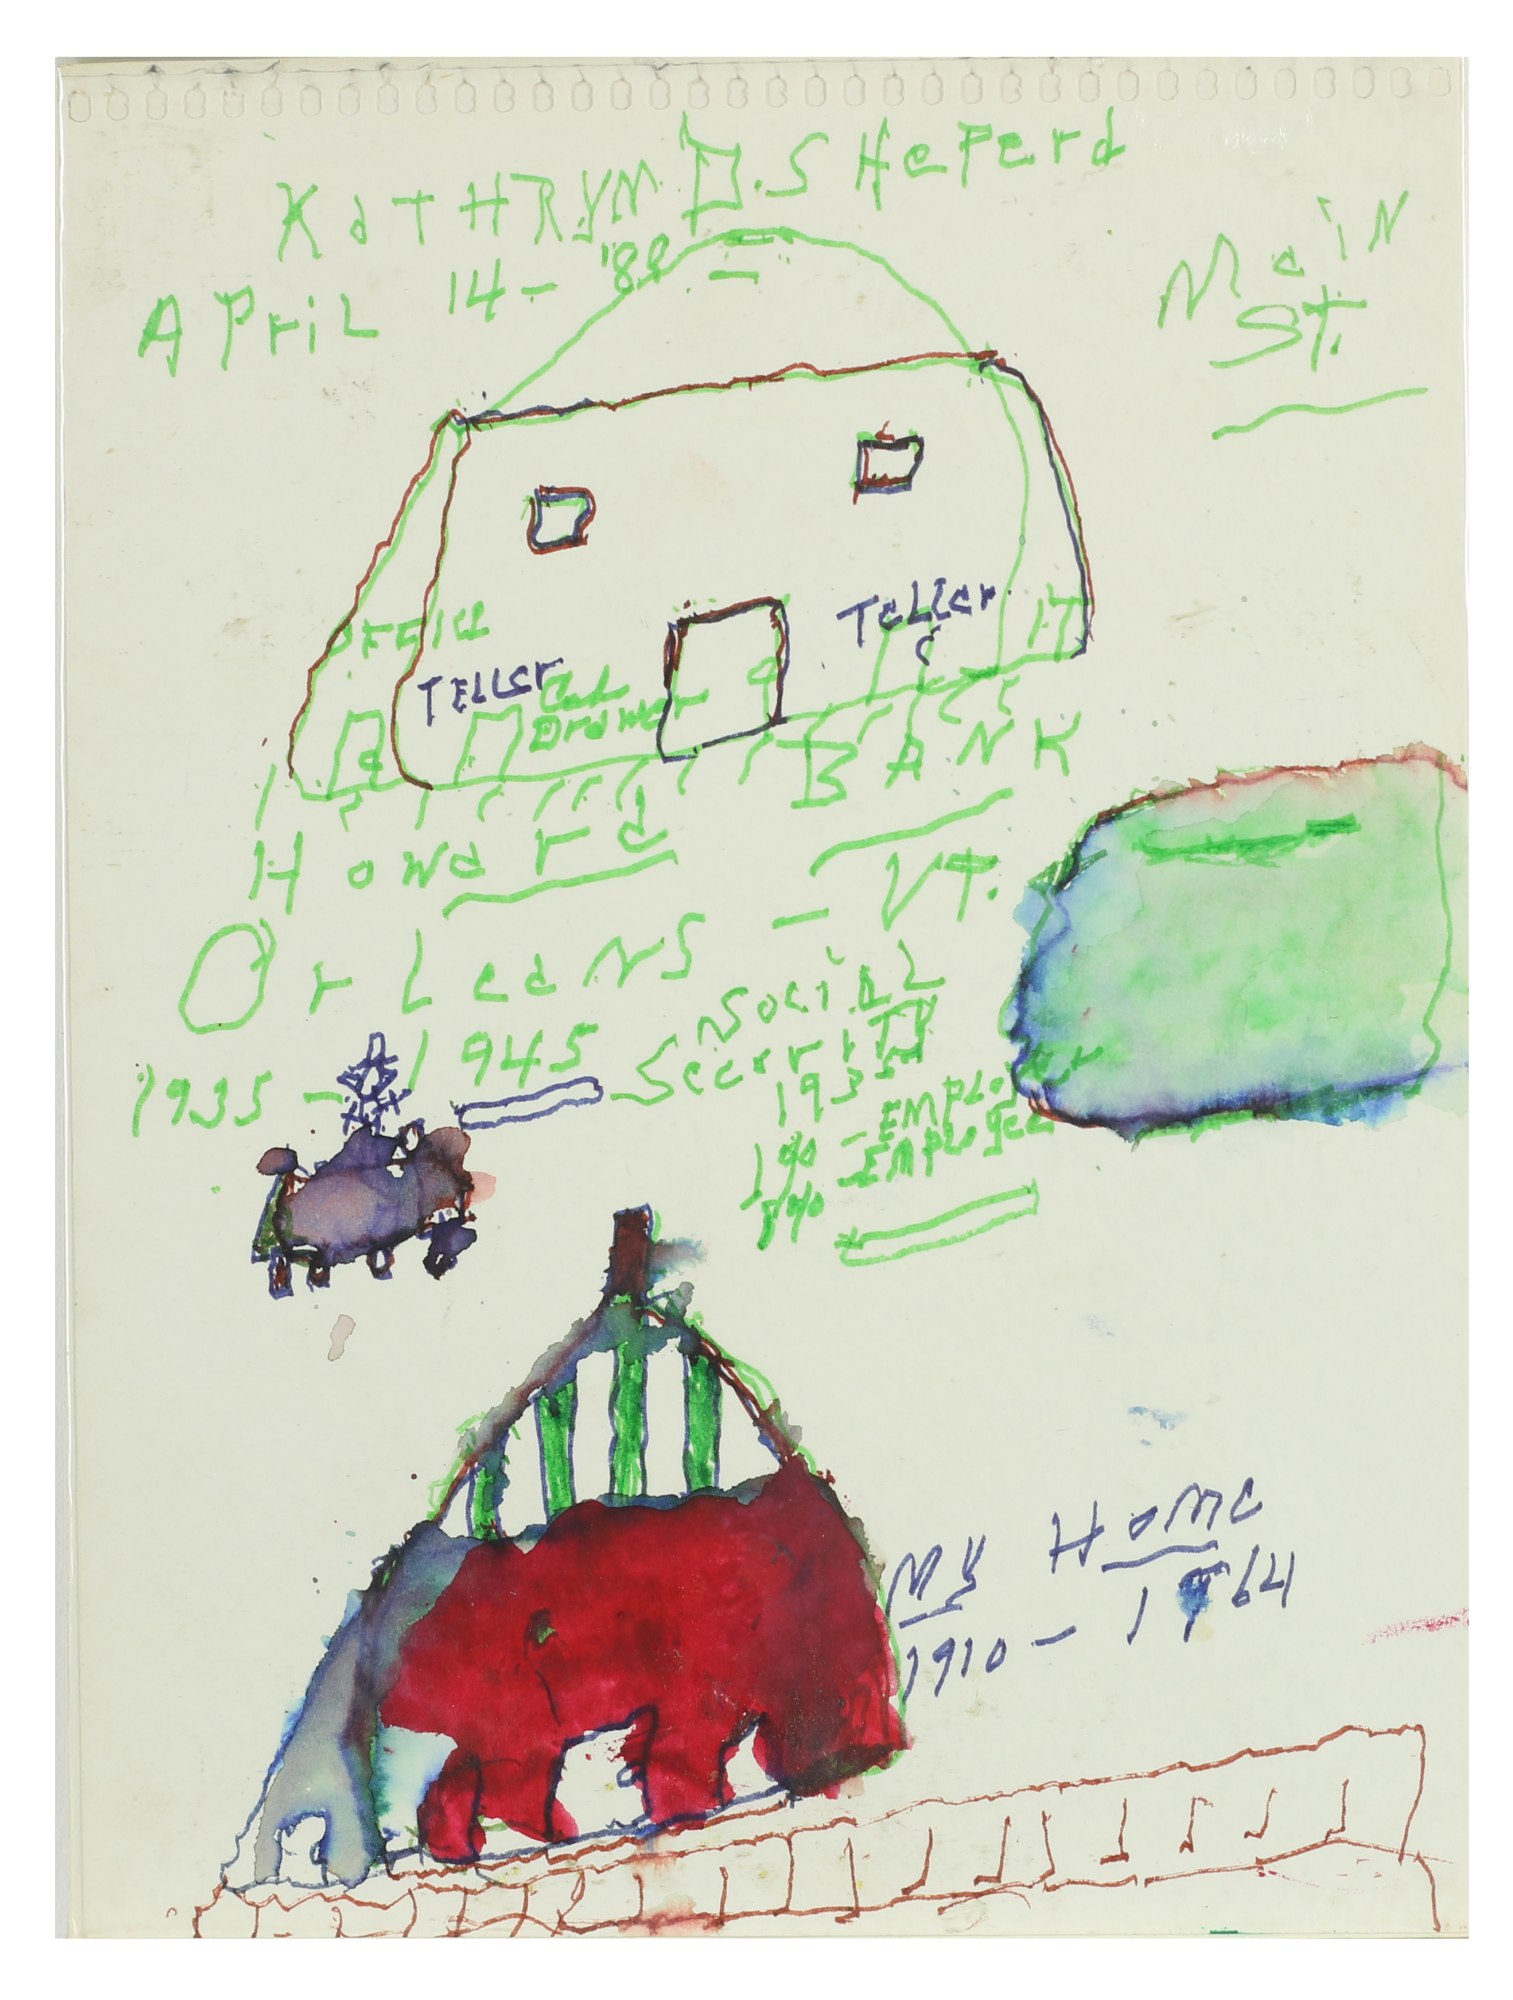 KaTHRYN D. SHePerd
APriL 14 - '89
MaiN
ST.
OFFice
TELLer
TeLLer
Cash
Drawer
BANK
Howard
OrLeans - VT.
1935 - 1945
SociaL
SecuriTy
1935
1% - EMPLoyer
1% - EMPLoyee
MY HoMe
1910 - 1964